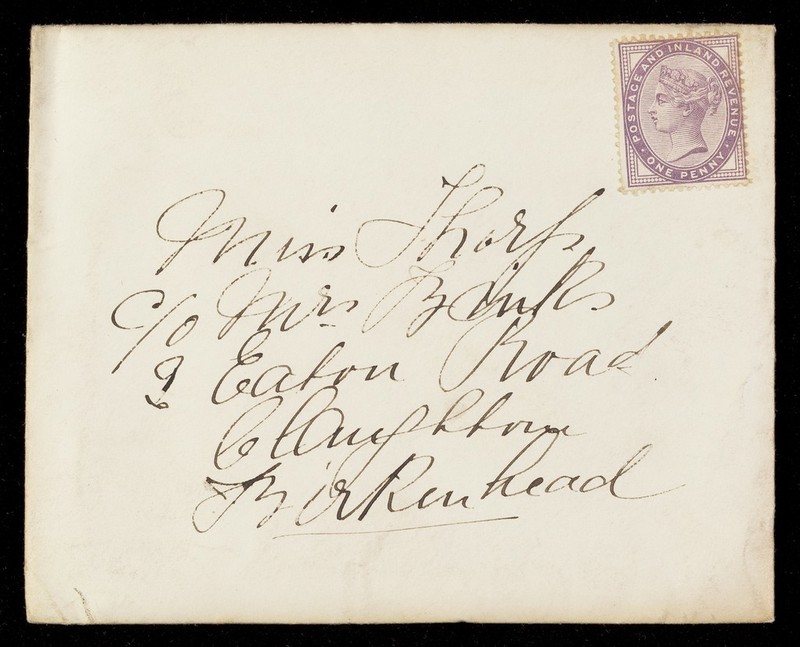 POSTAGE AND INLAND REVENUE
ONE PENNY
Miss Thorp
c/o Mrs Binks
Eaton Road
Claughton
Birkenhead